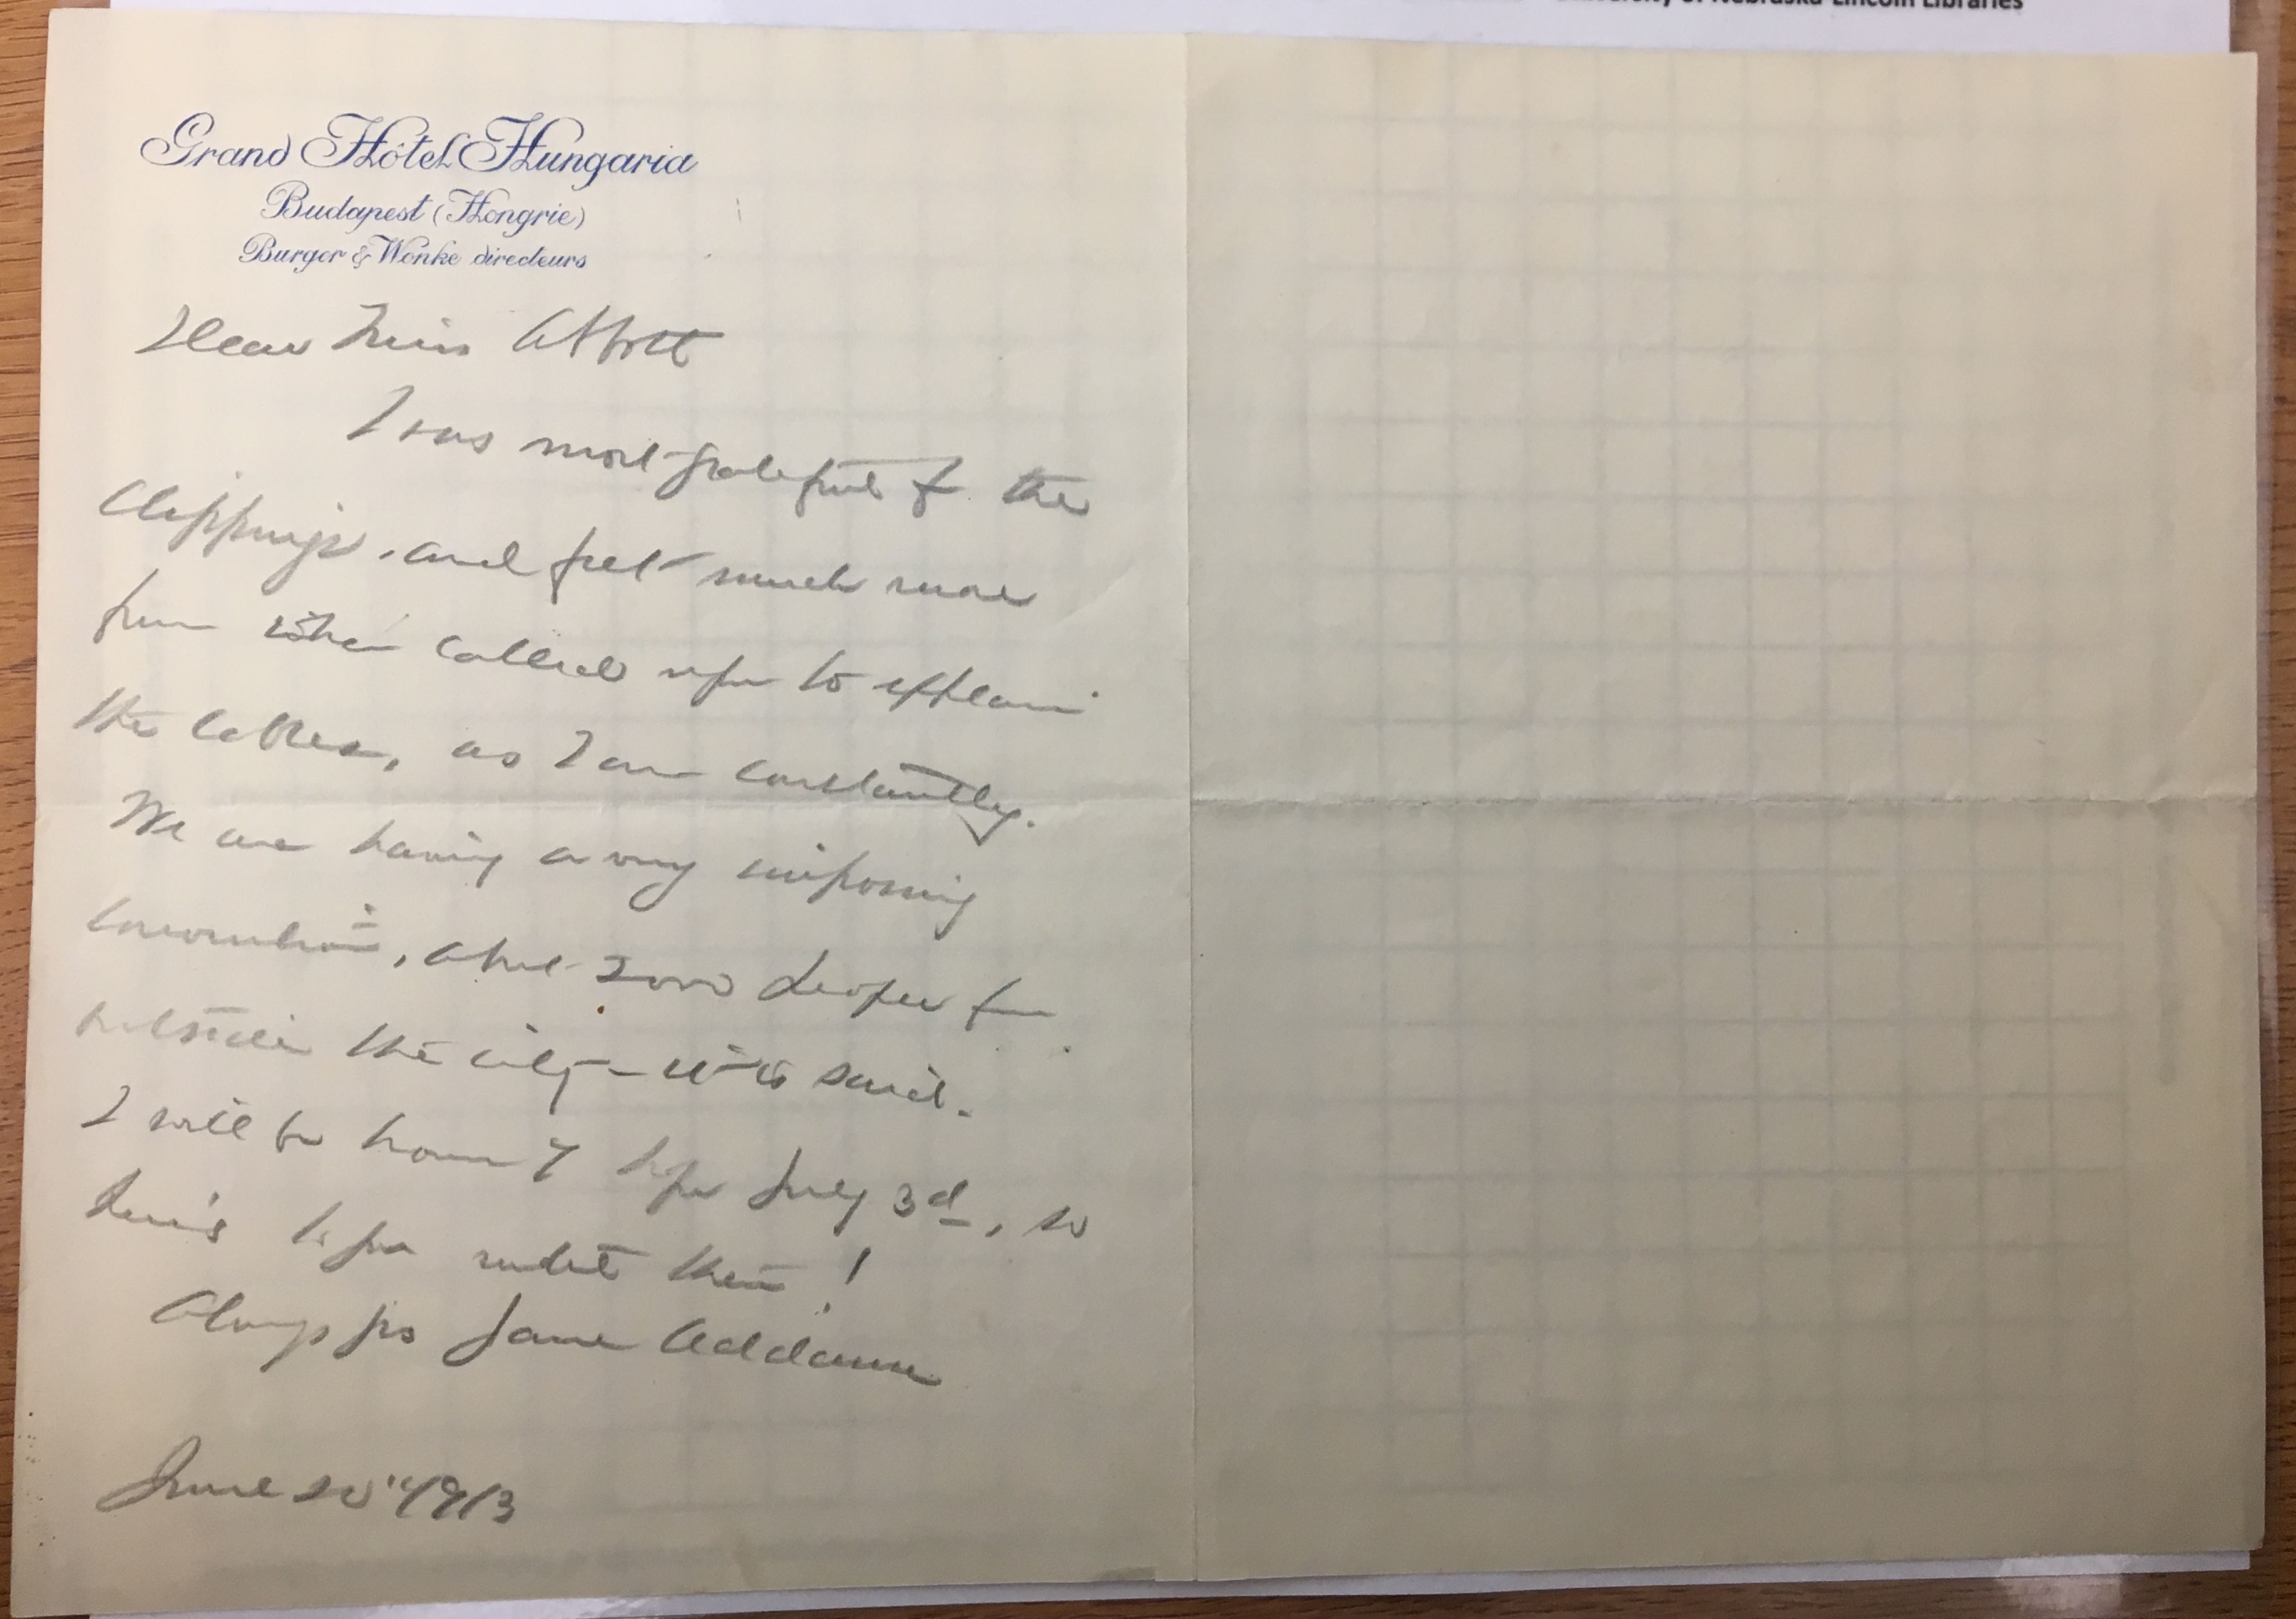 University of Nebraska-Lincoln Libraries
Grand Hôtel Hungaria
Budapest (Hongrie)
Burger & Wenke directeurs
Dear Miss Abbott
I was most grateful for the
clippings, and feel much more
firm when called upon to explain
the latter, as I am constantly.
We are having a very imposing
convention, about 2000 people from
outside the city - it is said.
I will be home I hope July 3d, so
then!
Always yrs Jane Addams
June 20" 1913